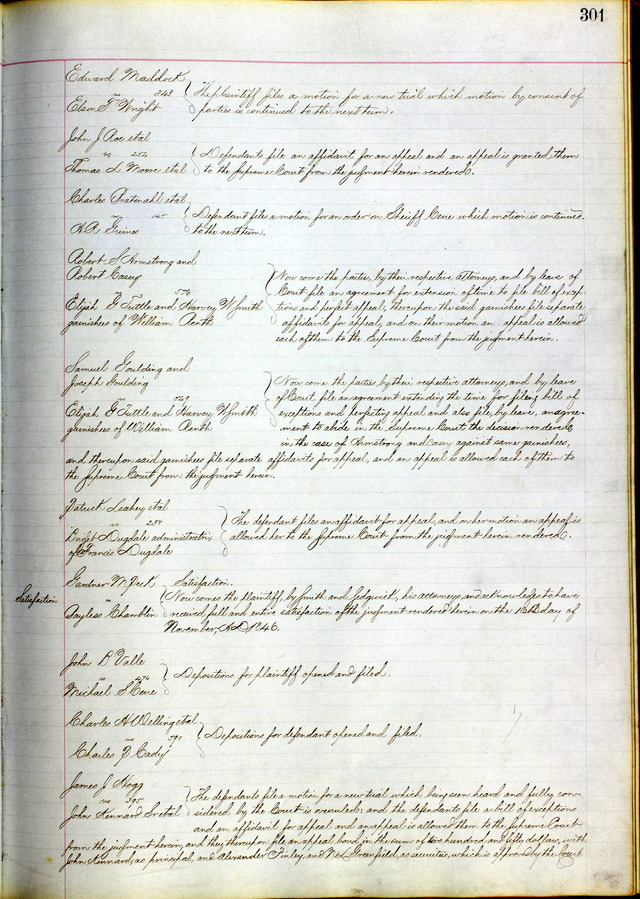 301
Edward Maddock
vs 343
Elson T Wright
The plaintiff files a motion for a new trial which motion by consent of
parties is continued to the next term.
John J Roe etal
vs 254
Thomas L Moore etal
Defendants file an affidavit for an appeal and an appeal is granted them
to the Supreme Court from the judgment herein rendered.
Charles etal
vs
H.R. Grimes
Defendant files a motion for an order on Sheriff Cerre which motion is continued
to the next term.
Robert S Armstrong and
Robert Casey
vs 576
Elijah G Tuttle and Harvey W Smith
garnishees of William
Now come the parties, by their respective attorneys, and by leave of
Court file an agreement for extension of time to file bill of excep-
tions and perfect appeal, thereupon the said garnishees file separate
affidavits for appeal, and on their motion an appeal is allowed
each of them to the Supreme Court from the judgment herein.
Samuel Goulding and
Joseph Goulding
vs
Elijah G Tuttle and Harvey W Smith
garnishees of William
Now come the parties by their respective attorneys, and by leave
of Court file an agreement extending the time for filing bill of
exceptions and perfecting appeal and also file, by leave, an agree-
ment to abide in the Supreme Court the decision rendered
in the case of Armstrong and Casey against same garnishees,
and thereupon said garnishees file separate affidavits for appeal, and an appeal is allowed each of them to
the Supreme Court from the judgment herein.
Patrick Leahey etal
vs 287
Bridget Dugdale administratrix
of Francis Dugdale
The defendant files an affidavit for appeal, and on her motion an appeal is
allowed her to the Supreme Court from the judgment herein rendered.
Satisfaction
Gardner M Peck Satisfaction.
vs
Bayless Chamblin
Now comes the plaintiff, by Smith and Sedgwick, his attorneys and acknowledge to have
received full and entire satisfaction of the judgment rendered herein on the day of
November, A.D. 1846.
John B Valle
vs 474
Michael S Cerre
Depositions for plaintiff opened and filed.
Charles A Welling etal
vs 590
Charles P Eady
Depositions for defendant opened and filed.
James J Hogg
vs 595
John Kennard Sr etal
The defendants file a motion for a new trial which being seen heard and fully con-
sidered by the Court is overruled; and the defendants file a bill of exceptions
and an affidavit for appeal and an appeal is allowed them to the Supreme Court
from the judgment herein, and they thereupon file an appeal bond in the sum of two hundred and fifty dollars, with
John Kennard, as principal, and Alexander Finley, and N L Greenfield, as securities, which is approved by the Court